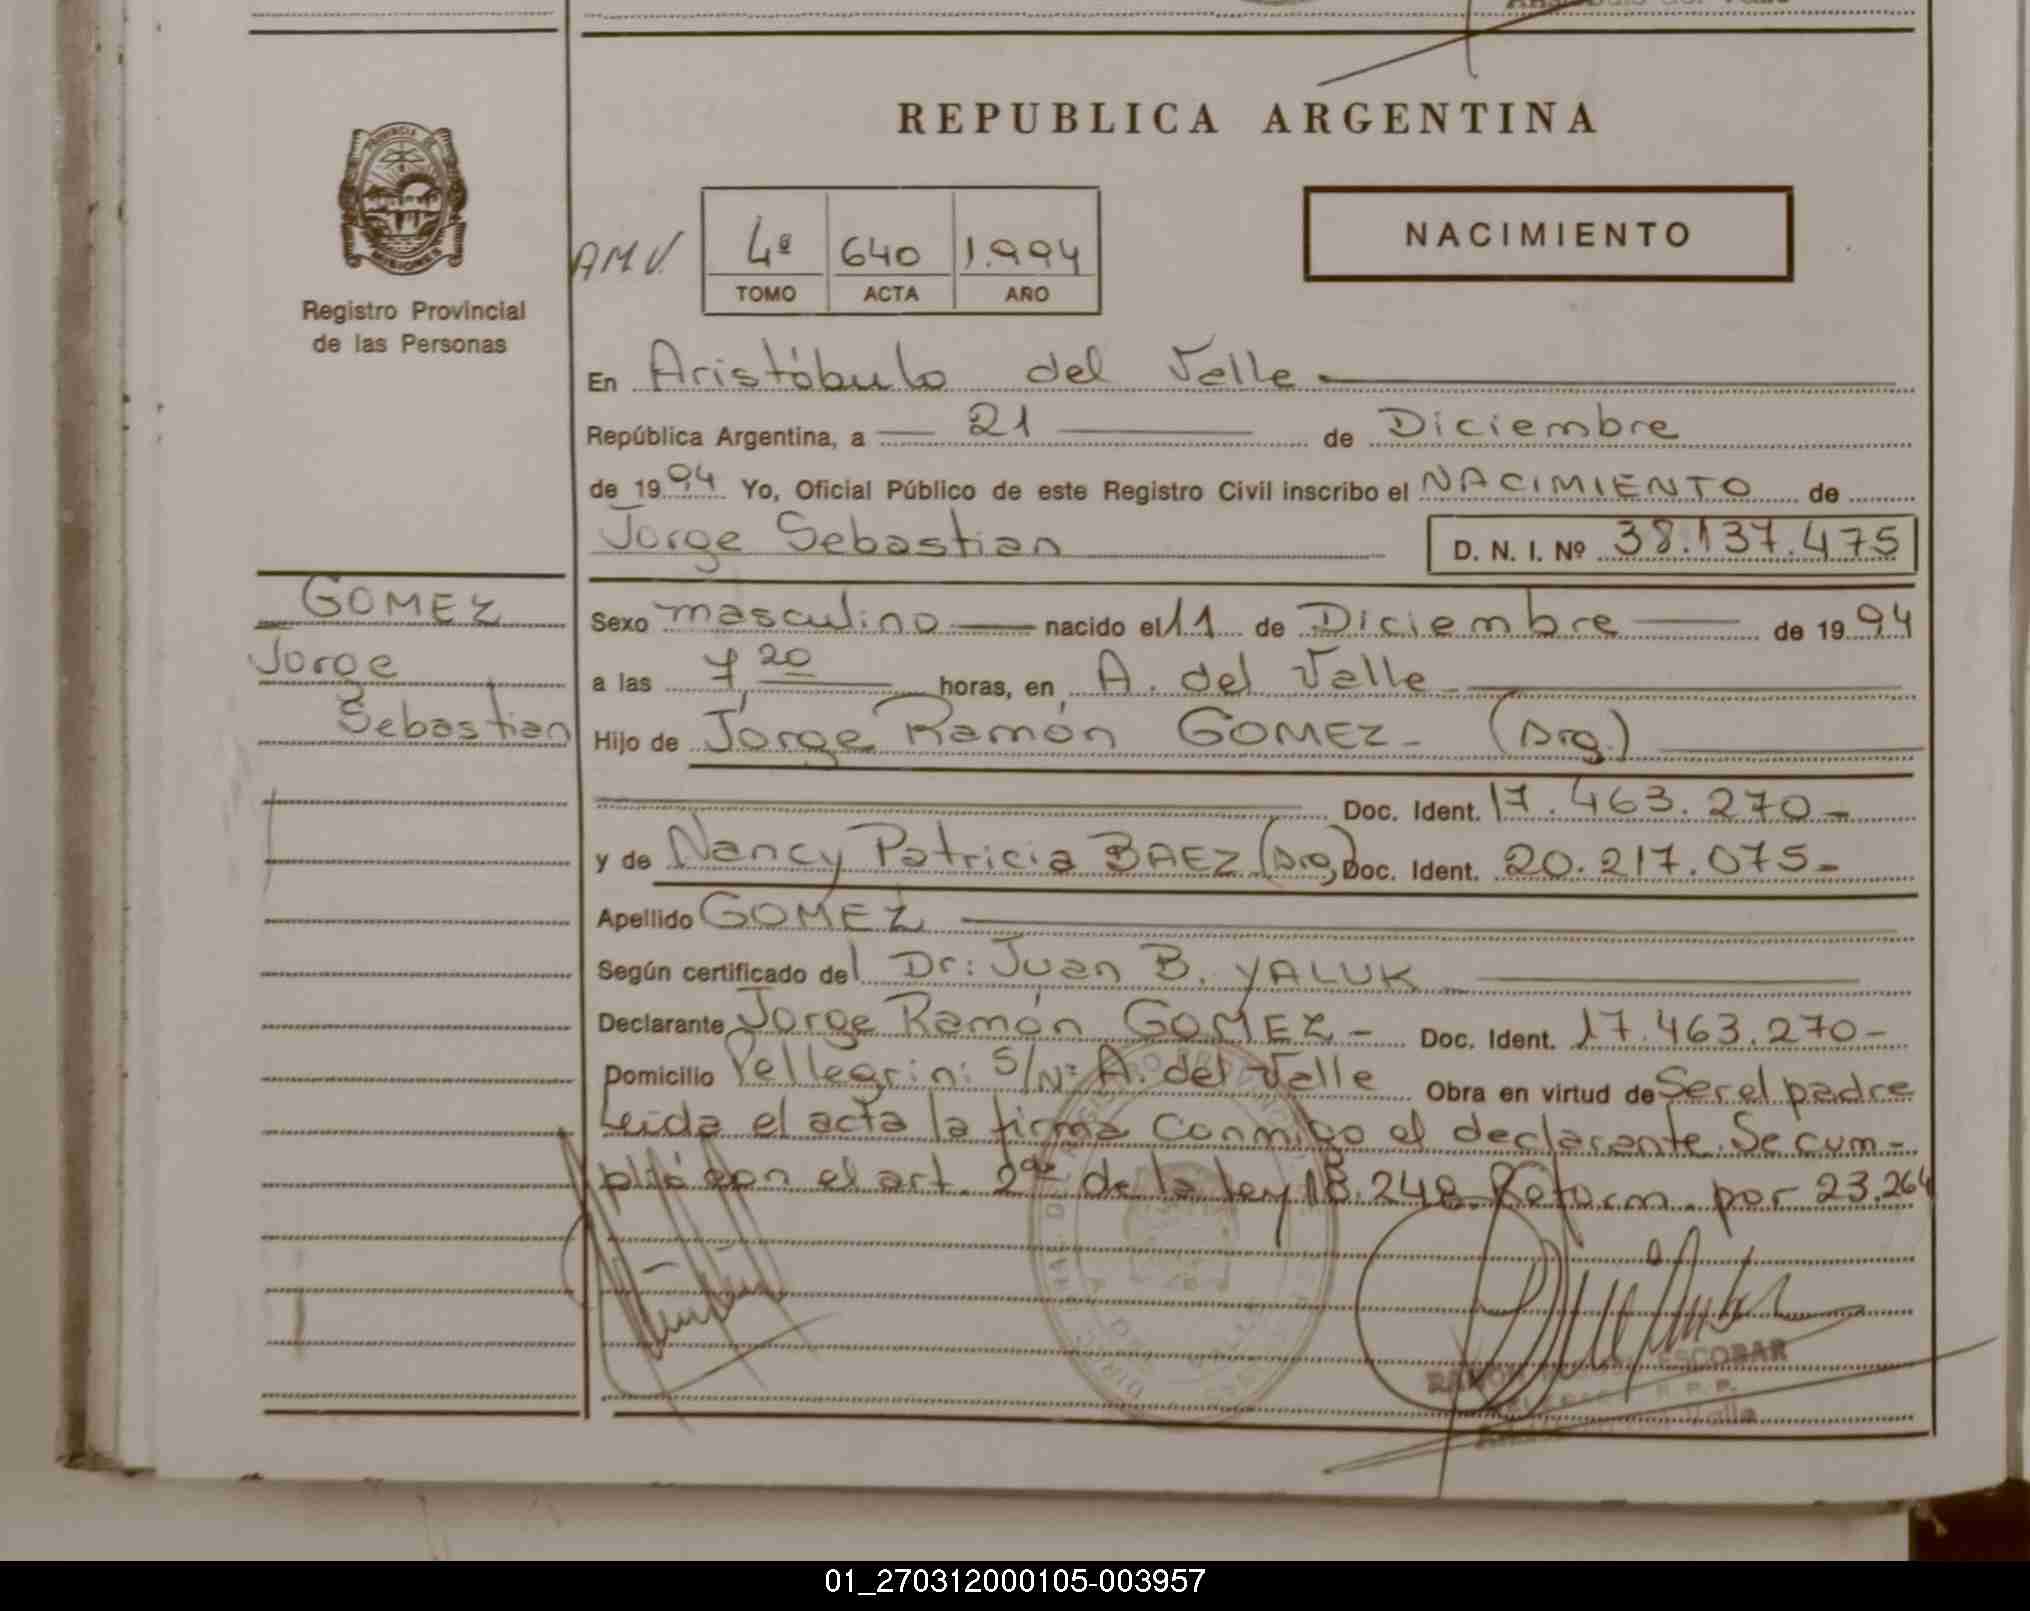 REPUBLICA ARGENTINA
PROVINCIA
MISIONES
Registro Provincial
de las Personas
A.M.V.
4º 640 1.994
TOMO ACTA AÑO
NACIMIENTO
En Aristóbulo del Valle
República Argentina, a 21 de Diciembre
de 1994 Yo, Oficial Público de este Registro Civil inscribo el NACIMIENTO de
Jorge Sebastian D. N. I. Nº 38.137.475
GOMEZ
Jorge
Sebastian
Sexo masculino nacido el 11 de Diciembre de 1994
a las 7,20 horas, en A. del Valle
Hijo de Jorge Ramón GOMEZ - (Arg.)
Doc. Ident. 17.463.270-
y de Nancy Patricia BAEZ (Arg) Doc. Ident. 20.217.075-
Apellido GOMEZ
Según certificado del Dr: Juan B. YALUK
Declarante Jorge Ramón GOMEZ - Doc. Ident. 17.463.270-
Domicilio Pellegrini S/Nº A. del Valle Obra en virtud de Ser el padre
Leida el acta la firma conmigo el declarante. Se cum-
plió con el art. 2do de la ley 18.248 Reform. por 23.264
RAMON ESCOBAR
R. P. P.
Valle
01_270312000105-003957